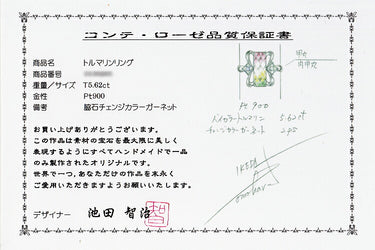 コンテ・ローゼ品質保証書
商品名 トルマリンリング
商品番号
重量／サイズ T5.62ct
金性 Pt900
備考 脇石チェンジカラーガーネット
お買い上げありがとうございます。
この作品は素材の宝石を最大限に美しく
表現するようにすべてハンドメイドで一品
のみ製作されたオリジナルです。
世界で一つ、あなただけの作品を末永く
ご愛用いただきますようお願いいたします。
デザイナー 池田 智治
Pt900
バイカラートルマリン 5.62ct
チェンジカラーガーネット
IKEDA